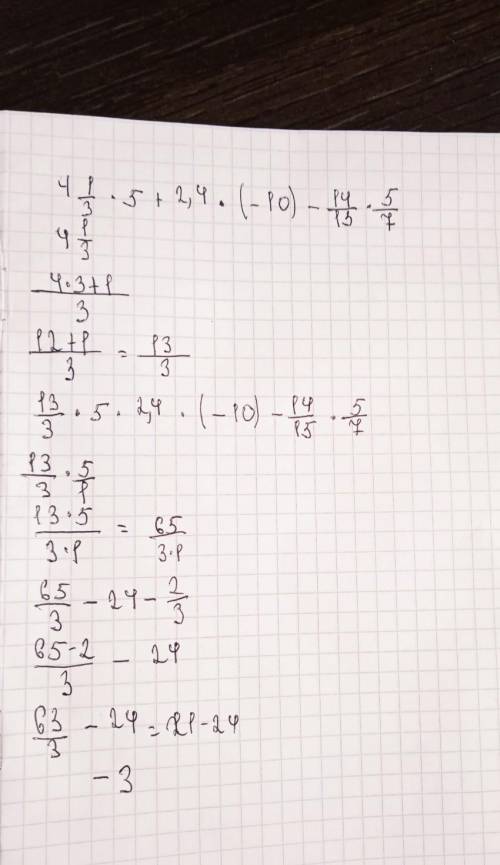 4 1/3 · 5 + 2,4 · (-10) - 14/15 · 5/7
4 1/3
4·3+1/3
12+1/3 = 13/3
13/3 · 5 · 2,4 · (-10) - 14/15 · 5/7
13/3 · 5/1
13·5/3·1 = 65/3·1
65/3 - 24 - 2/3
65-2/3 - 24
63/3 - 24 = 21-24
-3